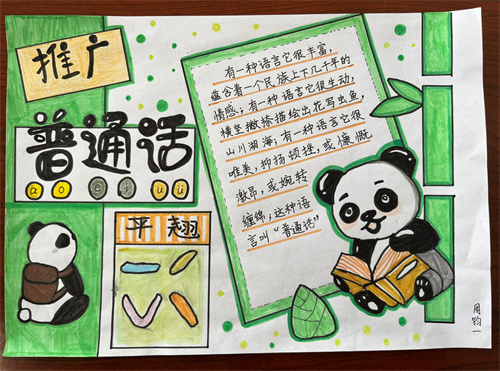 推广
普通话
a o e i u ü
平翘
有一种语言它很丰富,
蕴含着一个民族上下几千年的
情感;有一种语言它很生动,
横竖撇捺描绘出花写出鱼,
山川湖海;有一种语言它很
唯美,抑扬顿挫,或慷慨
激昂,或婉转
缠绵;这种语
言叫“普通话”